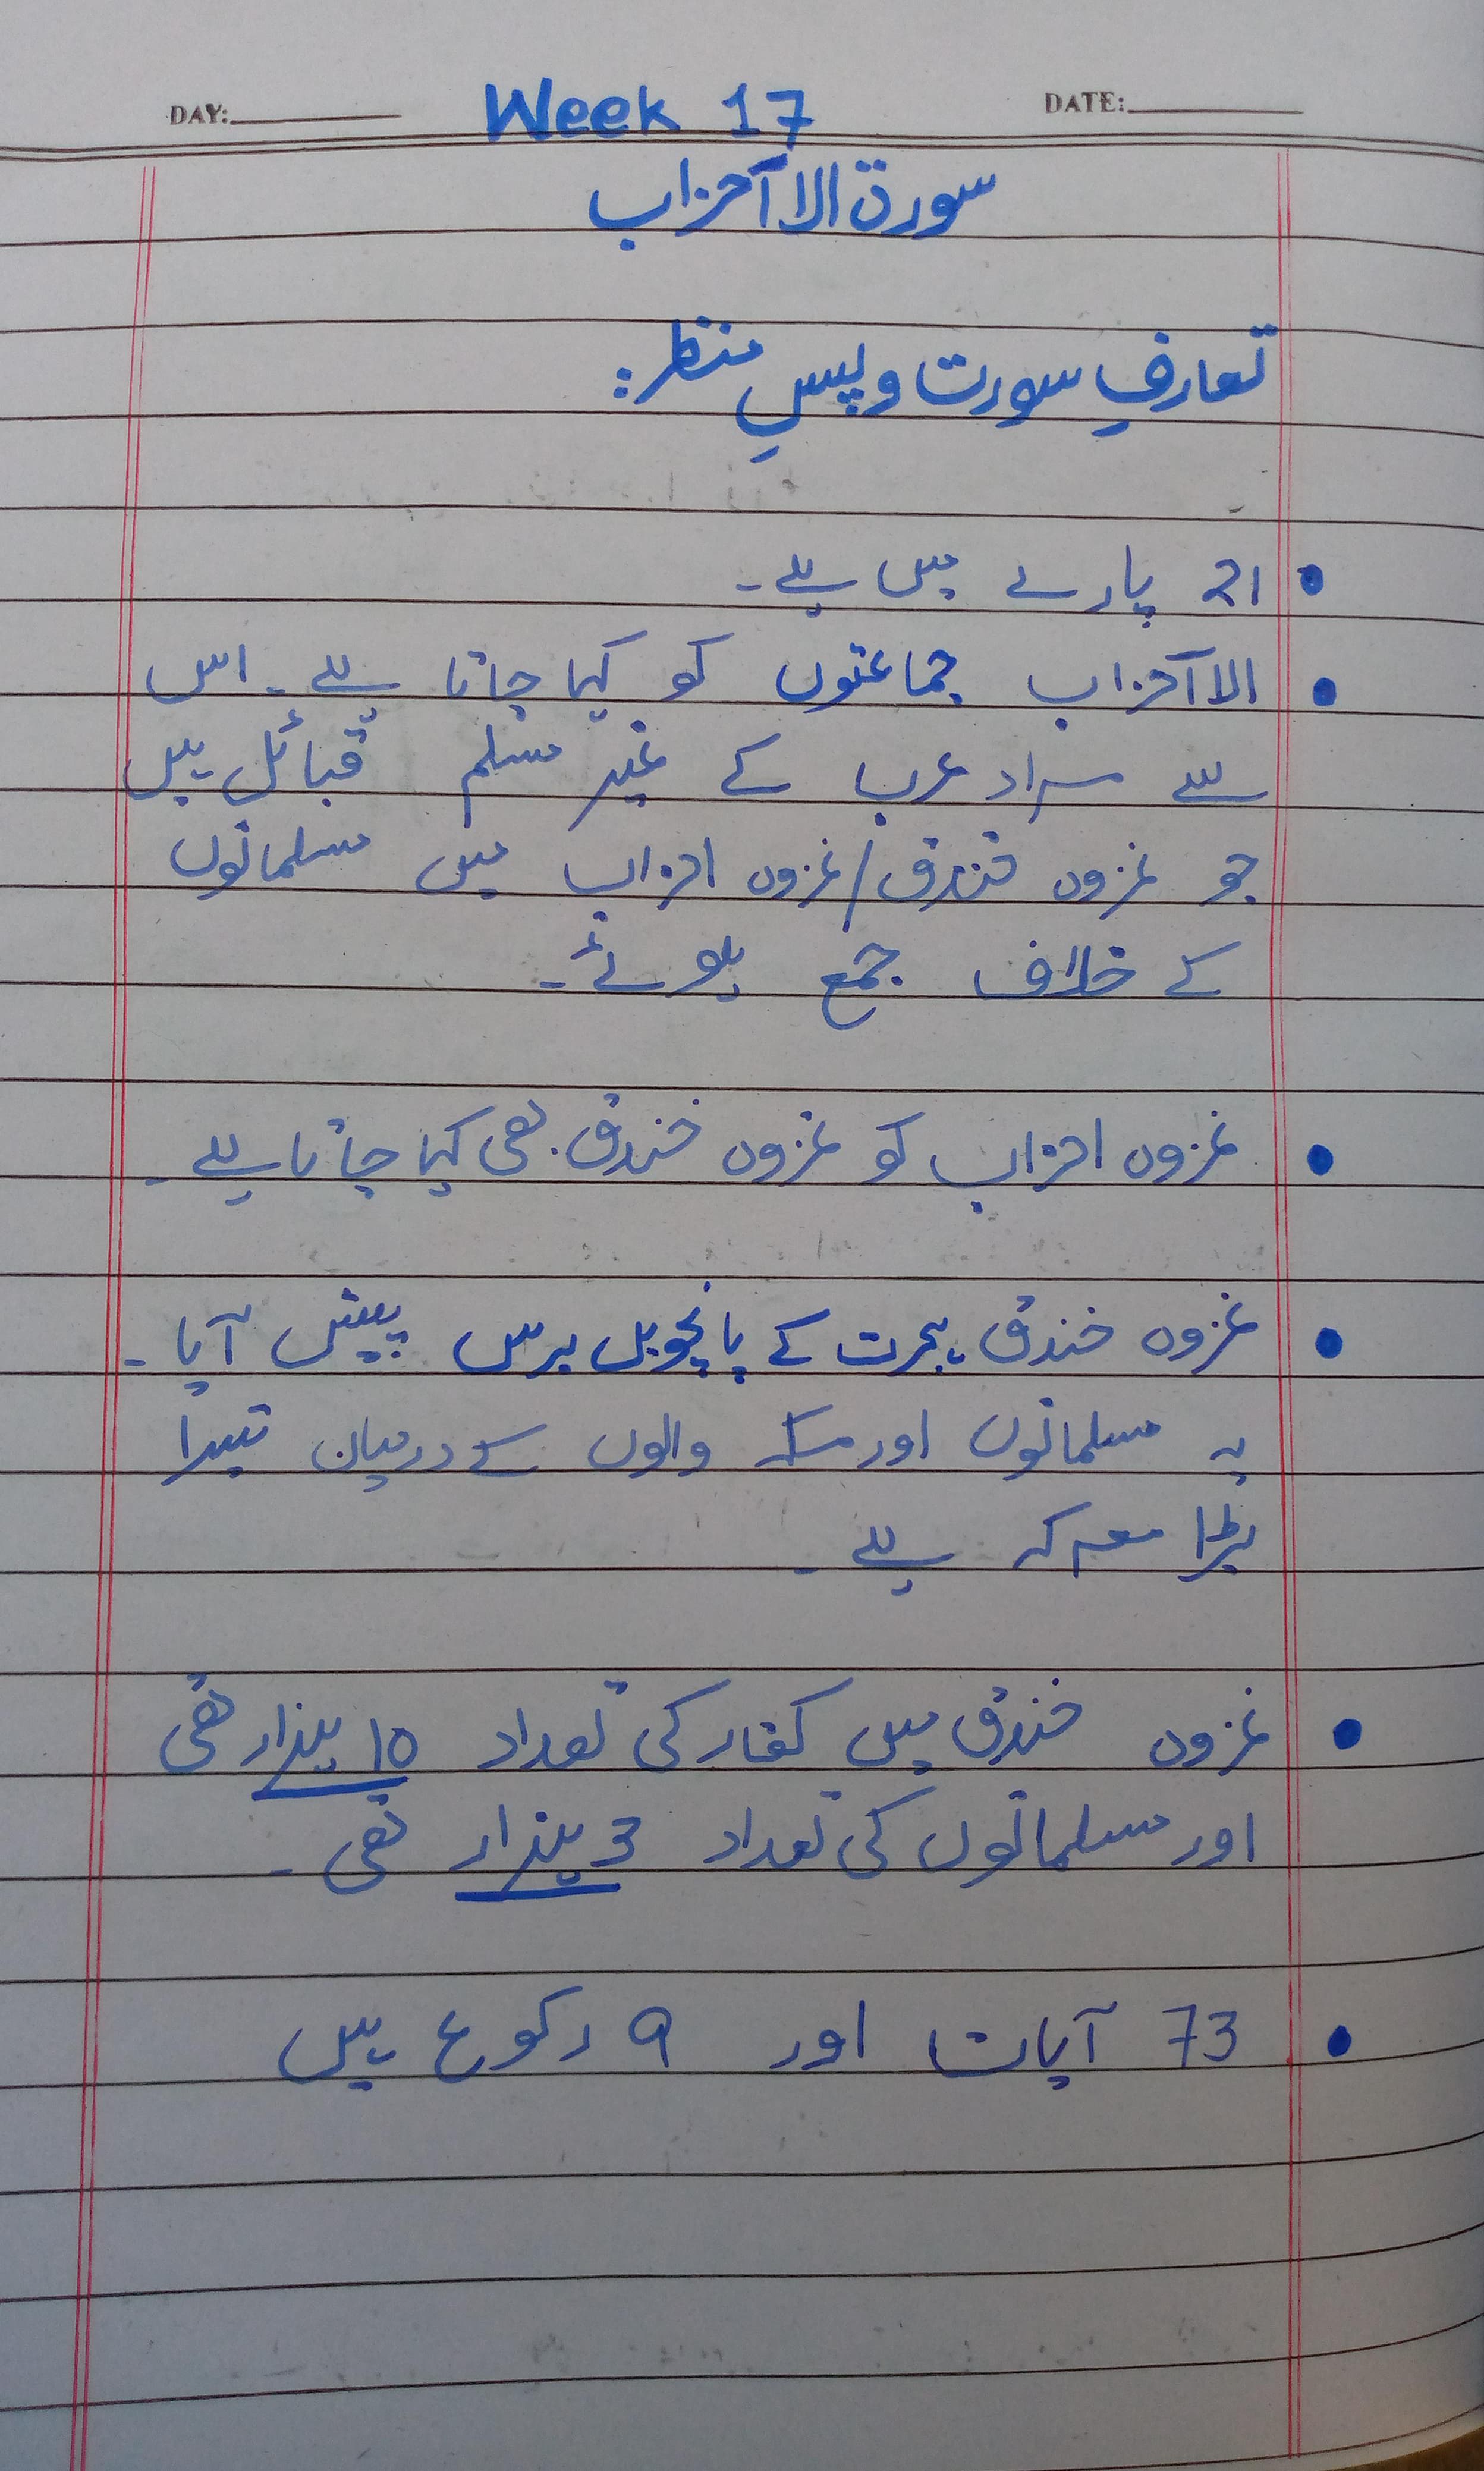 DAY: Week 17 DATE:
سورة الاآحزاب
تعارفِ سورت و پسِ منظر:
• 21 پارے میں ہے۔
• الاآحزاب جماعتوں کو کہا جاتا ہے۔ اس
سے مراد عرب کے غیر مسلم قبائل ہیں
جو غزوہ خندق/غزوہ احزاب میں مسلمانوں
کے خلاف جمع ہوئے۔
• غزوہ احزاب کو غزوہ خندق بھی کہا جاتا ہے۔
• غزوہ خندق ہجرت کے پانچویں برس پیش آیا۔
یہ مسلمانوں اور مکہ والوں کے درمیان تیسرا
بڑا معرکہ ہے۔
• غزوہ خندق میں کفار کی تعداد 10 ہزار تھی
اور مسلمانوں کی تعداد 3 ہزار تھی۔
• 73 آیات اور 9 رکوع ہیں